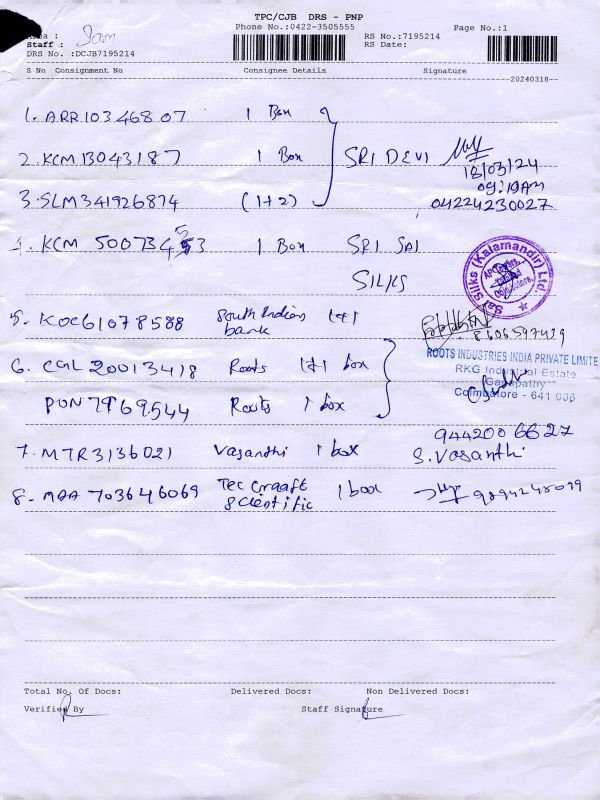 TPC/CJB DRS - PNP
Phone No.:0422-3505555
Page No.:1
RS No.:7195214
RS Date:
Staff :
DRS No. :DCJB7195214
S No Consignment No Consignee Details Signature
20240318
1. ARR10346807 1 Box
2. KCM13043187 1 Box SRI DEVI 18/03/24
09:19AM
3. SLM341926874 (1+2) 04224230027
4. KCM 50073453 1 Box SRI SAI
SILKS
Sai Silks (Kalamandir) Ltd
5. KOC61078588 South Indian 1+1
bank
8606597429
ROOTS INDUSTRIES INDIA PRIVATE LIMITE
RKG Industrial Estate
Ganapathy
Coimbatore - 641 006
6. CGL 20013418 Roots 1+1 box
PON7969544 Roots 1 box
9442006627
7. MTR3136021 Vasanthi 1 box S. Vasanthi
8. MAA 703646069 Tec Craaft 1 box
Scientific
Total No. Of Docs: Delivered Docs: Non Delivered Docs:
Verified By Staff Signature